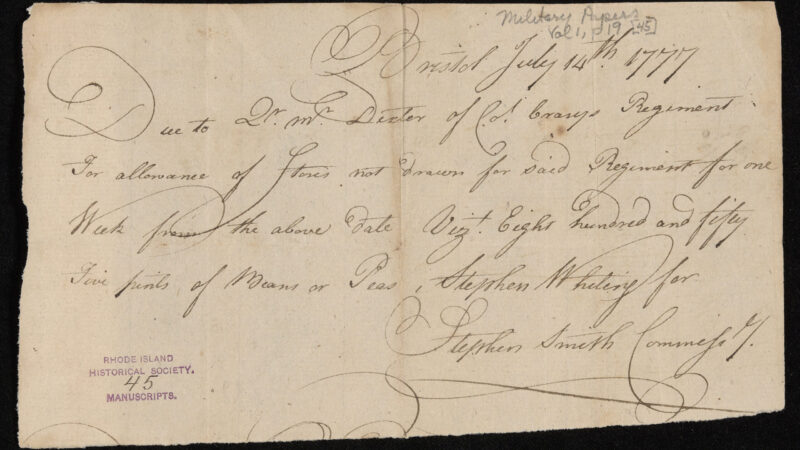 Military Papers
Vol 1, p 19 [45]
Bristol July 14th. 1777
Due to Qr. Mr. Dexter of Col. Crarys Regiment
For allowance of Stores not drawn for said Regiment for one
Week from the above date Vizt. Eight hundred and fifty
Five pints of Beans or Peas, Stephen Whiting for
Stephen Smith Commissy.
RHODE ISLAND
HISTORICAL SOCIETY.
45
MANUSCRIPTS.